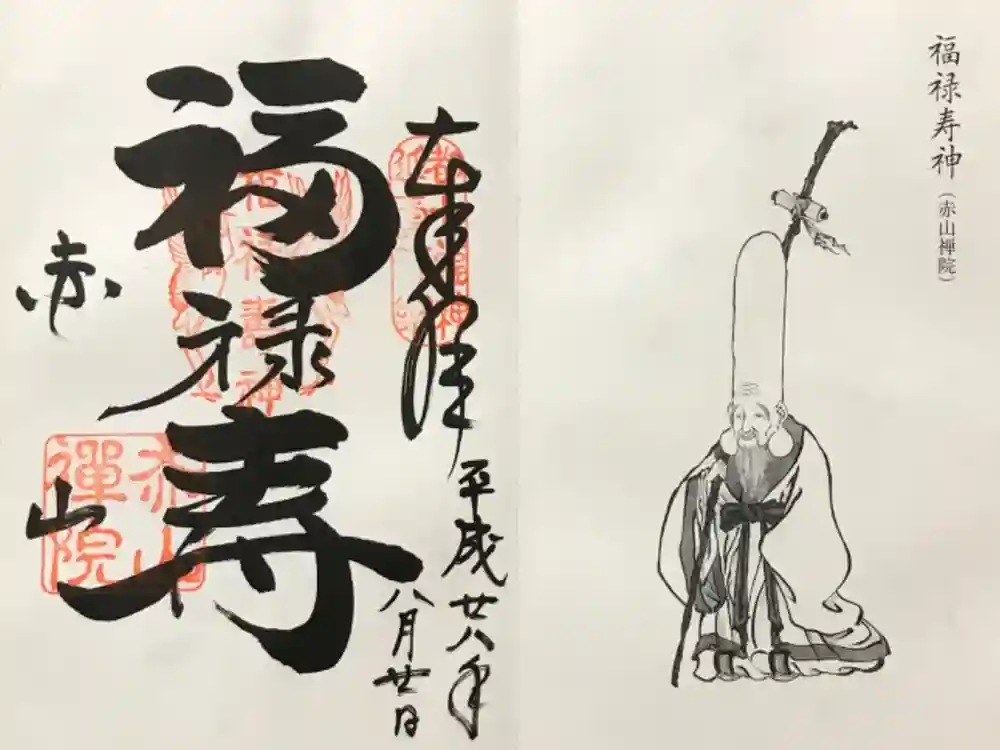 福禄寿神
(赤山禅院)
奉拝
平成廿八年
八月廿日
福禄寿
赤山
福禄壽神
赤山
禪院